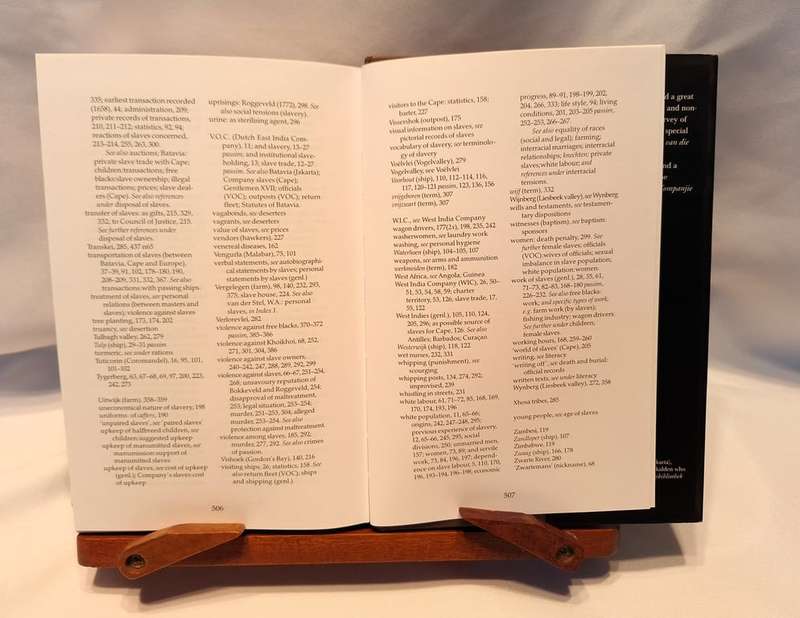 335; earliest transaction recorded
(1658), 44; administration, 209;
private records of transactions,
210, 211–212; statistics, 92, 94;
reactions of slaves concerned,
213–214, 255, 263, 300.
See also auctions; Batavia:
private slave trade with Cape;
children:transactions; free
blacks:slave ownership; illegal
transactions; prices; slave deal-
ers (Cape). See also references
under disposal of slaves.
transfer of slaves: as gifts, 215, 329,
332; to Council of Justice, 215.
See further references under
disposal of slaves.
Transkei, 285, 437 n65
transportation of slaves (between
Batavia, Cape and Europe),
37–39, 91, 102, 178–180, 190,
208–209, 331, 332, 367. See also
transactions:with passing ships.
treatment of slaves, see personal
relations (between masters and
slaves); violence against slaves
tree planting, 173, 174, 202
truancy, see desertion
Tulbagh valley, 262, 279
Tulp (ship), 29–31 passim
turmeric, see under rations
Tuticorin (Coromandel), 16, 95, 101,
101–102
Tygerberg, 63, 67–68, 69, 97, 200, 223,
242, 273
Uitwijk (farm), 358–359
uneconomic nature of slavery, 198
uniforms: of caffers, 190
'unpaired slaves', see 'paired slaves'
upkeep of halfbreed children, see
children:suggested upkeep
upkeep of manumitted slaves, see
manumission:support of
manumitted slaves
upkeep of slaves, see cost of upkeep
(genl.); Company's slaves:cost
of upkeep
uprisings: Roggeveld (1772), 298. See
also social tensions (slavery).
urine: as sterilising agent, 296
V.O.C. (Dutch East India Com-
pany), 11; and slavery, 13–27
passim; and institutional slave-
holding, 13; slave trade, 12–27
passim. See also Batavia (Jakarta);
Company slaves (Cape);
Gentlemen XVII; officials
(VOC); outposts (VOC); return
fleet; Statutes of Batavia.
vagabonds, see deserters
vagrants, see deserters
value of slaves, see prices
vendors (hawkers), 227
venereal diseases, 162
Vengurla (Malabar), 75, 101
verbal statements, see autobiographi-
cal statements by slaves; personal
statements by slaves (genl.)
Vergelegen (farm), 98, 140, 232, 293,
373; slave house, 224. See also
van der Stel, W.A.: personal
slaves, in Index 1.
Verlorevlei, 282
violence against free blacks, 370–372
passim, 385–386
violence against Khoikhoi, 68, 252,
271, 301, 304, 386
violence against slave owners,
240–242, 247, 288, 289, 292, 299
violence against slaves, 66–67, 251–254,
268; unsavoury reputation of
Bokkeveld and Roggeveld, 254;
disapproval of maltreatment,
253; legal situation, 253–254;
murder, 251–253, 304; alleged
murder, 253–254. See also
protection against maltreatment.
violence among slaves, 185, 292;
murder, 277, 292. See also crimes
of passion.
Vishoek (Gordon's Bay), 140, 216
visiting ships, 26; statistics, 158. See
also return fleet (VOC); ships
and shipping (genl.).
506
visitors to the Cape: statistics, 158;
barter, 227
Visservshok (outpost), 175
visual information on slaves, see
pictorial records of slaves
vocabulary of slavery, see terminolo-
gy of slavery
Voëlvlei (Vogelvalley), 279
Vogelvalley, see Voëlvlei
Voorhout (ship), 110, 112–114, 116,
117, 120–121 passim, 123, 136, 156
vrijgeboren (term), 307
vrijzwart (term), 307
W.I.C., see West India Company
wagon drivers, 177(2x), 198, 235, 242
washerwomen, see laundry work
washing, see personal hygiene
Waterloes (ship), 104–105, 107
weapons, see arms and ammunition
werkmeiden (term), 182
West Africa, see Angola; Guinea
West India Company (WIC), 26, 50–
51, 53, 54, 58, 59; charter
territory, 53, 126; slave trade, 17,
55, 122
West Indies (genl.), 105, 110, 124,
205, 296; as possible source of
slaves for Cape, 126. See also
Antilles; Barbados; Curaçao
Westerwijk (ship), 118, 122
wet nurses, 232, 331
whipping (punishment), see
scourging
whipping posts, 134, 274, 292;
improvised, 239
whistling in streets, 231
white labour, 61, 71–72, 85, 168, 169,
170, 174, 193, 196
white population, 11, 65–66;
origins, 242, 247–248, 295;
previous experience of slavery,
12, 65–66, 245, 295; social
divisions, 250; unmarried men,
157; women, 73, 89; and servile
work, 73, 84, 196, 197; depend-
ence on slave labour, 5, 110, 170,
196, 193–194, 196–198; economic
progress, 89–91, 198–199, 202,
204, 266, 333; life style, 94; living
conditions, 201, 203–205 passim,
252–253, 266–267.
See also equality of races
(social and legal); farming;
interracial marriages; interracial
relationships; knechten; private
slaves; white labour; and
references under interracial
tensions.
wijf (term), 332
Wijnberg (Liesbeek valley), see Wynberg
wills and testaments, see testamen-
tary dispositions
witnesses (baptism), see baptism:
sponsors
women: death penalty, 299. See
further female slaves; officials
(VOC):wives of officials; sexual
imbalance in slave population;
white population:women
work of slaves (genl.), 28, 55, 61,
71–73, 82–83, 168–180 passim,
226–232. See also free blacks:
work; and specific types of work;
e.g. farm work (by slaves);
fishing industry; wagon drivers.
See further under children;
female slaves.
working hours, 168, 259–260
'world of slaves' (Cape), 205
writing, see literacy
'writing off', see death and burial:
official records
written texts, see under literacy
Wynberg (Liesbeek valley), 272, 358
Xhosa tribes, 285
young people, see age of slaves
Zambesi, 119
Zandloper (ship), 107
Zimbabwe, 119
Zwaag (ship), 166, 178
Zwarte River, 280
'Zwartemans' (nickname), 68
507
d a great
and non-
rvey of
special
van die
nd a
Companjie
karta),
alden who
bibliothek